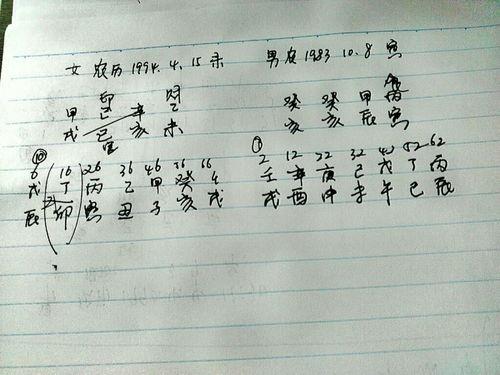 女 农历 1994. 4. 15 未
男 农 1983 10. 8 寅
卯
甲 己 辛
戌 巳 亥 未
癸 癸 甲 丙
亥 亥 辰 寅
⑩
6 16 26 36 46 56 66
戊 丁 丙 乙 甲 癸
辰 卯 寅 丑 子 亥 戌
①
2 12 22 32 42 52 62
壬 辛 庚 己 戊 丁 丙
戌 酉 申 未 午 巳 辰